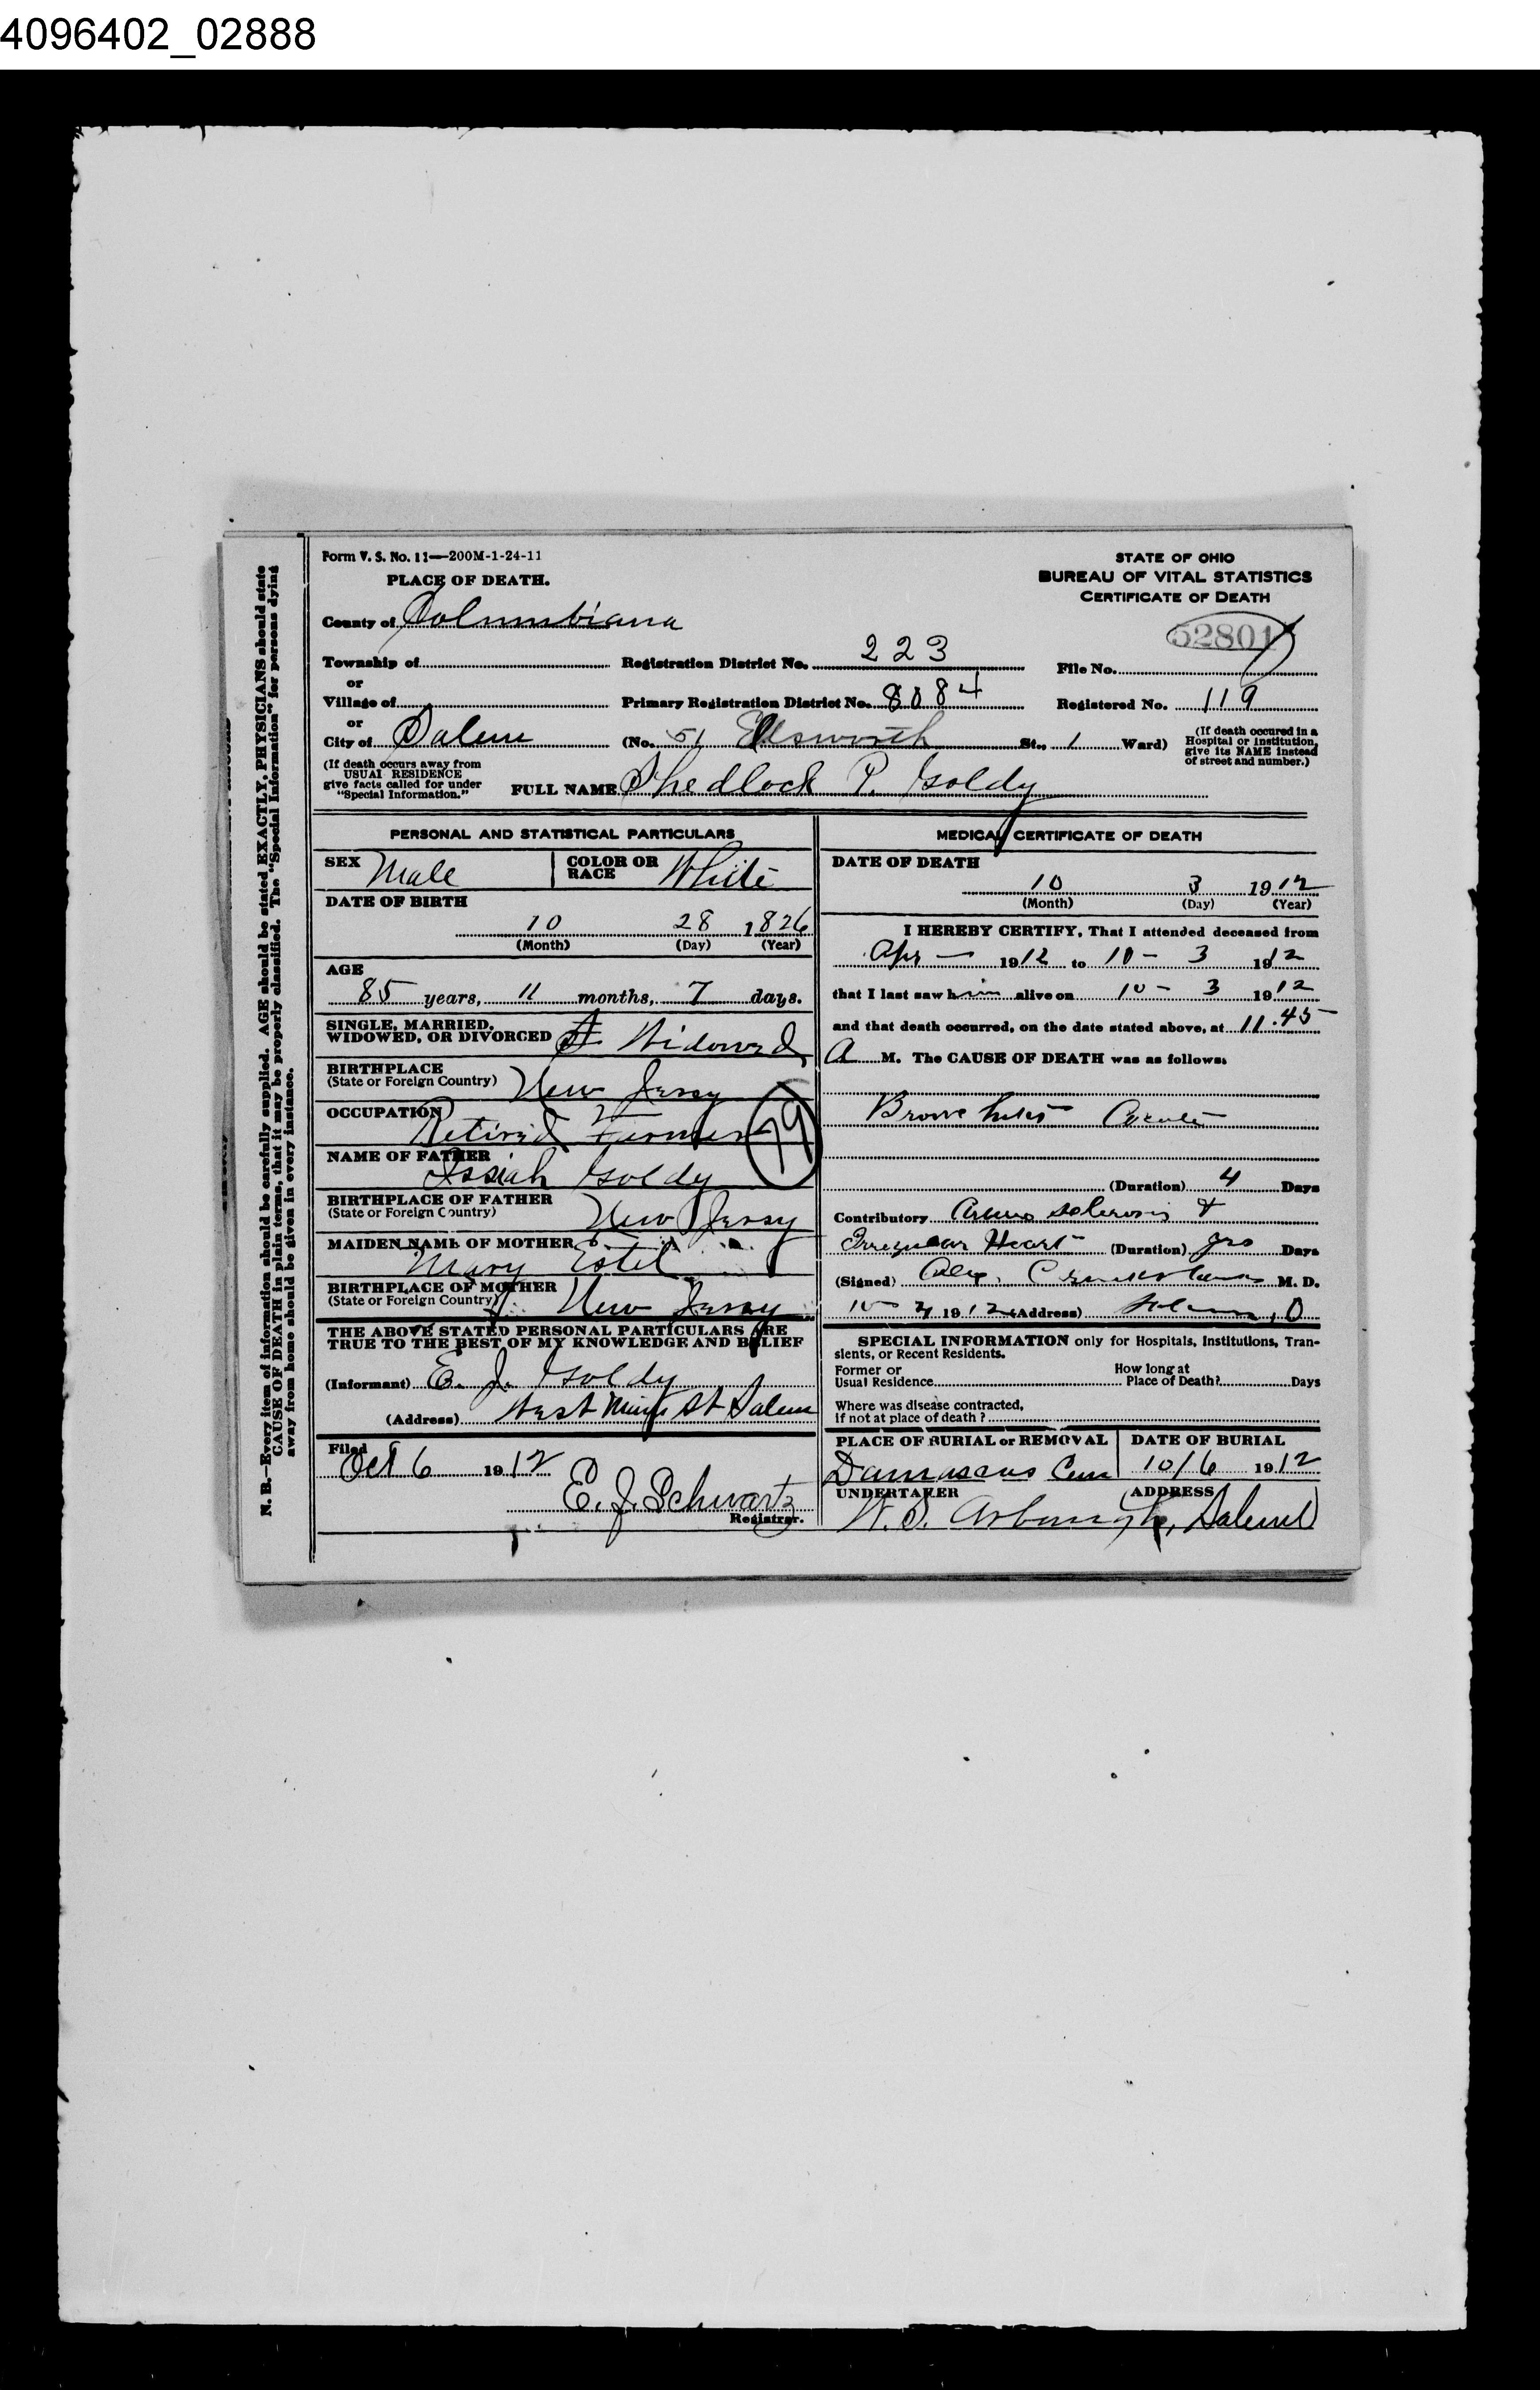 4096402_02888
Form V. S. No. 11—200M-1-24-11
PLACE OF DEATH.
STATE OF OHIO
BUREAU OF VITAL STATISTICS
CERTIFICATE OF DEATH
County of Columbiana
52801
Township of Registration District No. 223 File No.
or
Village of Primary Registration District No. 8084 Registered No. 119
or
City of Salem (No. 51 Ellsworth St., 1 Ward)
(If death occured in a Hospital or institution, give its NAME instead of street and number.)
(If death occurs away from USUAL RESIDENCE give facts called for under "Special Information.")
FULL NAME Shedlock P. Goldy
PERSONAL AND STATISTICAL PARTICULARS
SEX Male COLOR OR RACE White
DATE OF BIRTH
10 28 1826
(Month) (Day) (Year)
AGE
85 years, 11 months, 7 days.
SINGLE, MARRIED, WIDOWED, OR DIVORCED Widowed
BIRTHPLACE
(State or Foreign Country) New Jersey
OCCUPATION Retired Farmer
79
NAME OF FATHER Issiah Goldy
BIRTHPLACE OF FATHER
(State or Foreign Country) New Jersey
MAIDEN NAME OF MOTHER Mary Estel
BIRTHPLACE OF MOTHER
(State or Foreign Country) New Jersey
THE ABOVE STATED PERSONAL PARTICULARS ARE
TRUE TO THE BEST OF MY KNOWLEDGE AND BELIEF
(Informant) E. J. Goldy
(Address) West Main St Salem
Filed Oct 6 1912
E. J. Schwartz
Registrar.
MEDICAL CERTIFICATE OF DEATH
DATE OF DEATH
10 3 1912
(Month) (Day) (Year)
I HEREBY CERTIFY, That I attended deceased from
Apr — 1912 to 10 - 3 1912
that I last saw him alive on 10 - 3 1912
and that death occurred, on the date stated above, at 11.45
A M. The CAUSE OF DEATH was as follows:
Bronchitis Acute
(Duration) 4 Days
Contributory sclerosis &
Irregular Heart (Duration) yrs Days
(Signed) M. D.
1912 (Address) Salem, O
SPECIAL INFORMATION only for Hospitals, Institutions, Transients, or Recent Residents.
Former or
Usual Residence
How long at
Place of Death? Days
Where was disease contracted,
if not at place of death?
PLACE OF BURIAL or REMOVAL DATE OF BURIAL
Damascus Cem 10/6 1912
UNDERTAKER ADDRESS
W. S. Arbaugh, Salem O
N. B.—Every item of information should be carefully supplied. AGE should be stated EXACTLY. PHYSICIANS should state
CAUSE OF DEATH in plain terms, that it may be properly classified. The "Special Information" for persons dying
away from home should be given in every instance.